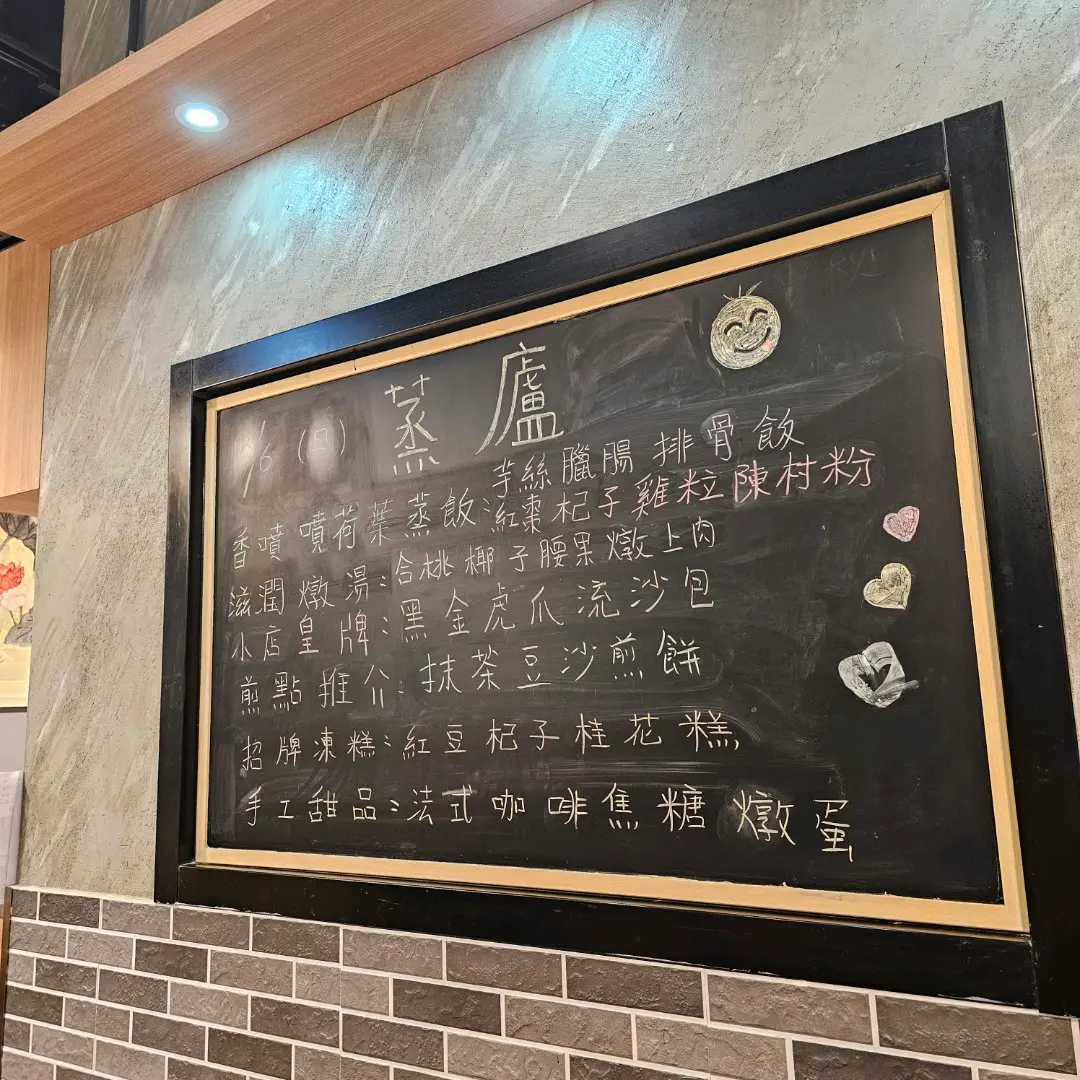 蒸廬
/6 (日)
芋絲臘腸排骨飯
香噴噴荷葉蒸飯:紅棗杞子雞粒陳村粉
滋潤燉湯:合桃椰子腰果燉上肉
小店皇牌:黑金虎爪流沙包
煎點推介:抹茶豆沙煎餅
招牌凍糕:紅豆杞子桂花糕
手工甜品:法式咖啡焦糖燉蛋